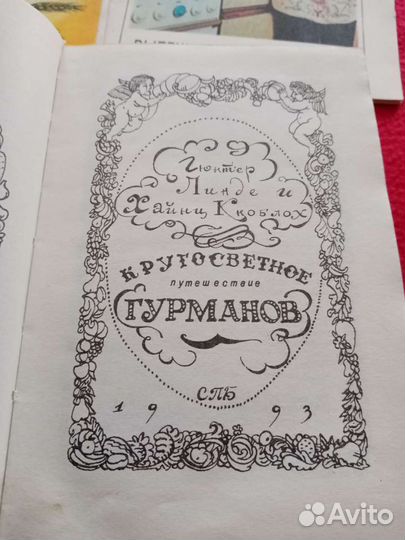 Гюнтер
Линде и
Хайнц Кноблох
КРУГОСВЕТНОЕ
путешествие
ГУРМАНОВ
СПБ
1993
Avito